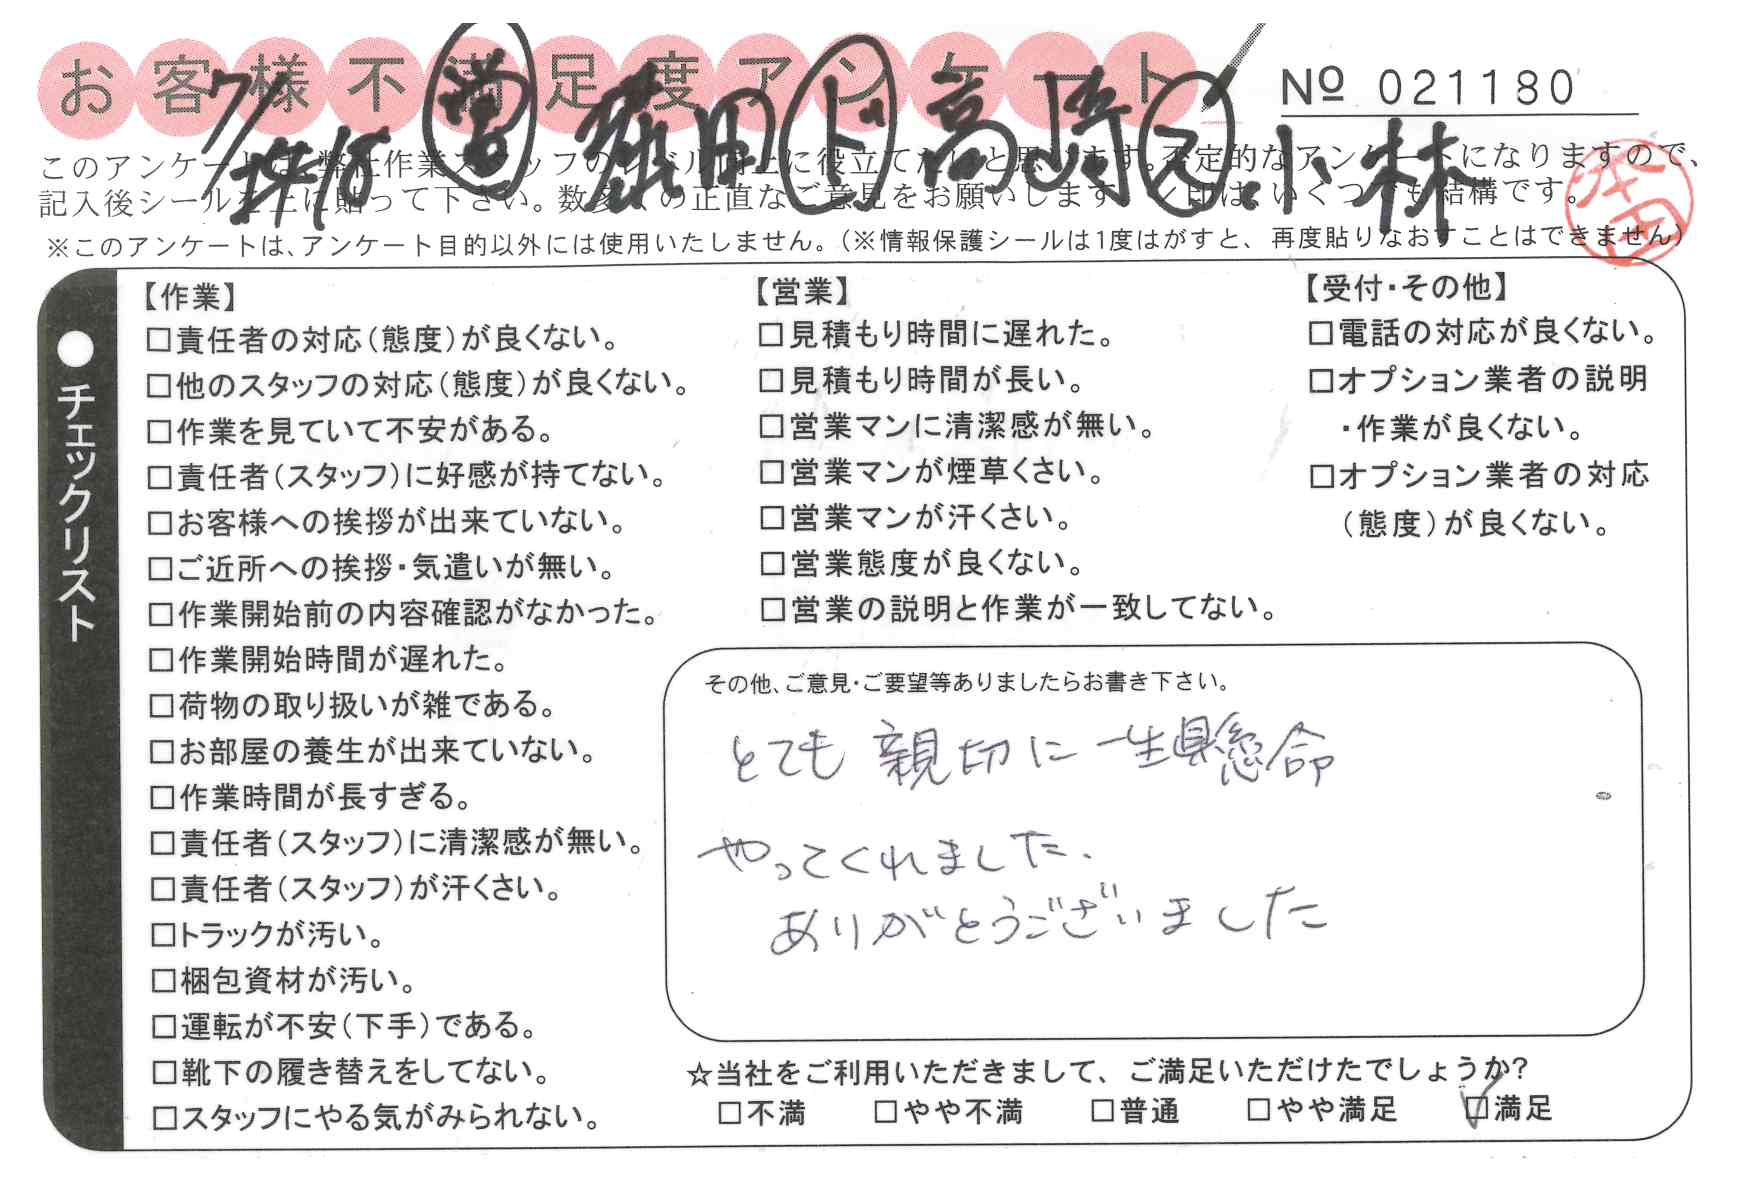 お客様不満足度アンケート
№ 021180
7/
営 田 ド 高崎 ス 小林
本田
このアンケートは、弊社作業スタッフのレベル向上に役立てたいと思います。否定的なアンケートになりますので、
記入後シールを上に貼って下さい。数多くの正直なご意見をお願いします。✓印は、いくつでも結構です。
※このアンケートは、アンケート目的以外には使用いたしません。(※情報保護シールは1度はがすと、再度貼りなおすことはできません)
●チェックリスト
【作業】
□責任者の対応(態度)が良くない。
□他のスタッフの対応(態度)が良くない。
□作業を見ていて不安がある。
□責任者(スタッフ)に好感が持てない。
□お客様への挨拶が出来ていない。
□ご近所への挨拶・気遣いが無い。
□作業開始前の内容確認がなかった。
□作業開始時間が遅れた。
□荷物の取り扱いが雑である。
□お部屋の養生が出来ていない。
□作業時間が長すぎる。
□責任者(スタッフ)に清潔感が無い。
□責任者(スタッフ)が汗くさい。
□トラックが汚い。
□梱包資材が汚い。
□運転が不安(下手)である。
□靴下の履き替えをしてない。
□スタッフにやる気がみられない。
【営業】
□見積もり時間に遅れた。
□見積もり時間が長い。
□営業マンに清潔感が無い。
□営業マンが煙草くさい。
□営業マンが汗くさい。
□営業態度が良くない。
□営業の説明と作業が一致してない。
【受付・その他】
□電話の対応が良くない。
□オプション業者の説明
・作業が良くない。
□オプション業者の対応
(態度)が良くない。
その他、ご意見・ご要望等ありましたらお書き下さい。
とても親切に一生懸命
やってくれました.
ありがとうございました
☆当社をご利用いただきまして、ご満足いただけたでしょうか?
□不満 □やや不満 □普通 □やや満足 ☑満足